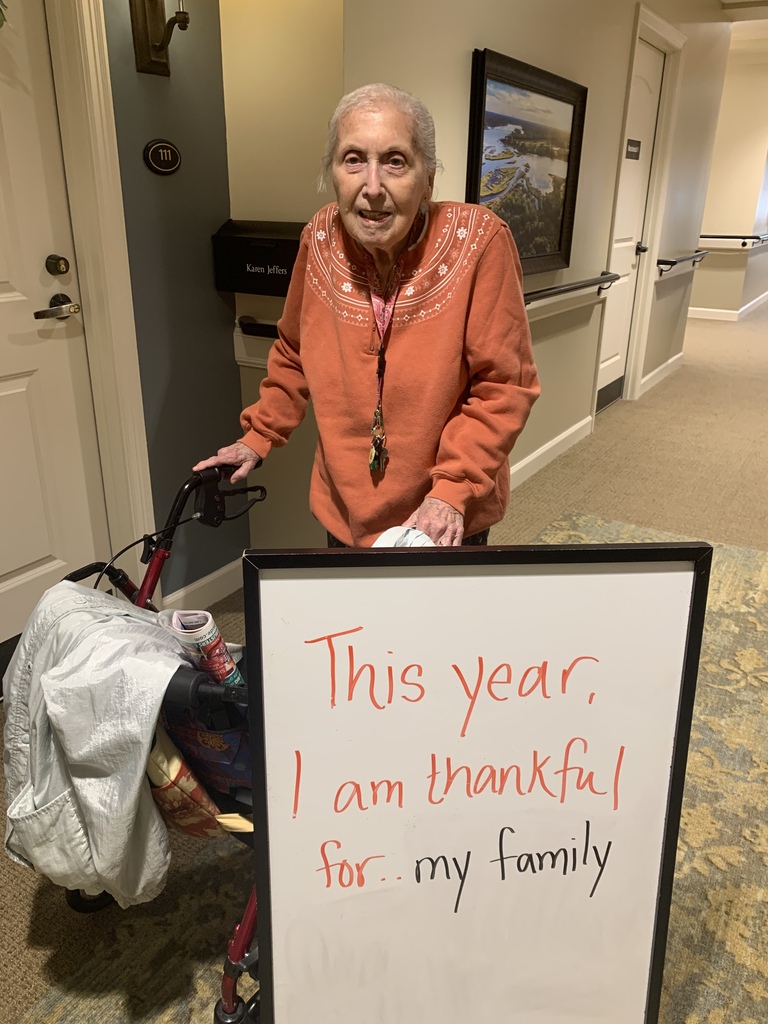 111
Karen Jeffers
This year,
I am thankful
for.. my family